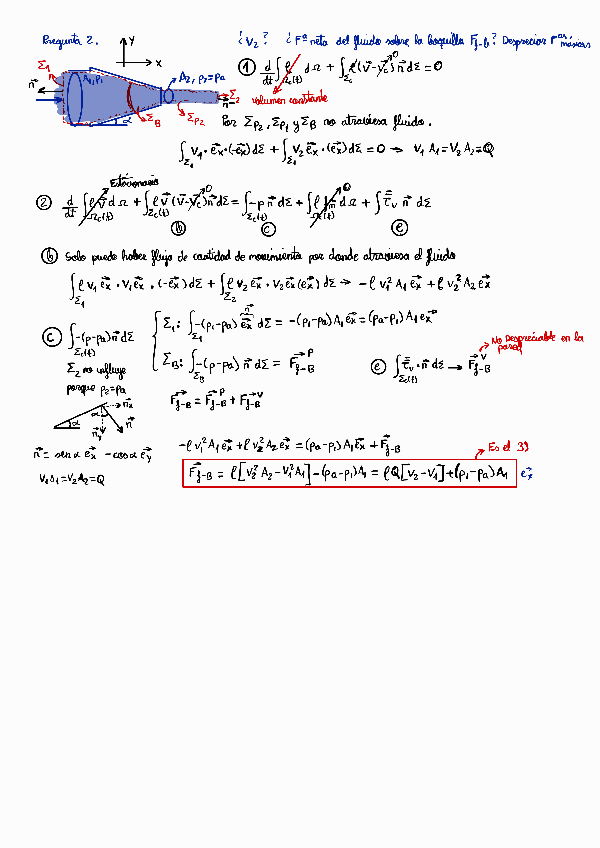 Pregunta 2.
¿V₂? ¿Fª neta del fluido sobre la boquilla F_f-B? Despreciar Fᵃˢ másicas
Y
X
Σ₁
A₁, P₁
A₂, P₂=Pa
n⃗
Σ₂
n⃗
α
Σ_B
Σ_P2
① d/dt ∫_Ωc(t) ρ dΩ + ∫_Σc ρ(v⃗-v⃗c)n⃗ dΣ = 0
0
volumen constante
Por Σ_P2, Σ_P1 y Σ_B no atraviesa fluido.
∫_Σ₁ V₁·e⃗x·(-e⃗x)dΣ + ∫_Σ₁ V₂ e⃗x·(e⃗x)dΣ = 0 → V₁A₁=V₂A₂=Q
Estacionario
② d/dt ∫_Ωc(t) ρv⃗ dΩ + ∫_Σc(t) ρv⃗(v⃗-v⃗c)n⃗ dΣ = ∫_Σc(t) -p n⃗ dΣ + ∫_Ωc(t) ρf⃗m dΩ + ∫ τ̿v n⃗ dΣ
0 0
ⓑ ⓒ ⓔ
ⓑ Solo puede haber flujo de cantidad de movimiento por donde atraviesa el fluido
∫_Σ₁ ρ v₁ e⃗x · v₁e⃗x · (-e⃗x)dΣ + ∫_Σ₂ ρ v₂ e⃗x · v₂e⃗x(e⃗x)dΣ → -ρ v₁² A₁ e⃗x + ρ v₂² A₂ e⃗x
ⓒ ∫_Σc(t) -(p-pa)n⃗ dΣ
Σ₁: ∫_Σ₁ -(p₁-pa) e⃗x dΣ = -(p₁-pa)A₁e⃗x=(pa-p₁)A₁e⃗x
n⃗
Σ₂ no influye
porque p₂=pa
Σ_B: ∫_Σ_B -(p-pa) n⃗ dΣ = F⃗_f-B^P
ⓔ ∫_Σc(t) τ̿v·n⃗ dΣ → F⃗_f-B^V
No Despreciable en la
pared
F⃗_f-B = F⃗_f-B^P + F⃗_f-B^V
α
α
n⃗x
n⃗y
n⃗
n⃗ = sen α e⃗x - cos α e⃗y
V₁A₁=V₂A₂=Q
-ρ v₁² A₁ e⃗x + ρ v₂² A₂ e⃗x = (pa-p₁)A₁e⃗x + F⃗_f-B
Es el 39
F⃗_f-B = ρ[v₂² A₂ - v₁² A₁] - (pa-p₁)A₁ = ρQ[v₂-v₁] + (p₁-pa) A₁ e⃗x